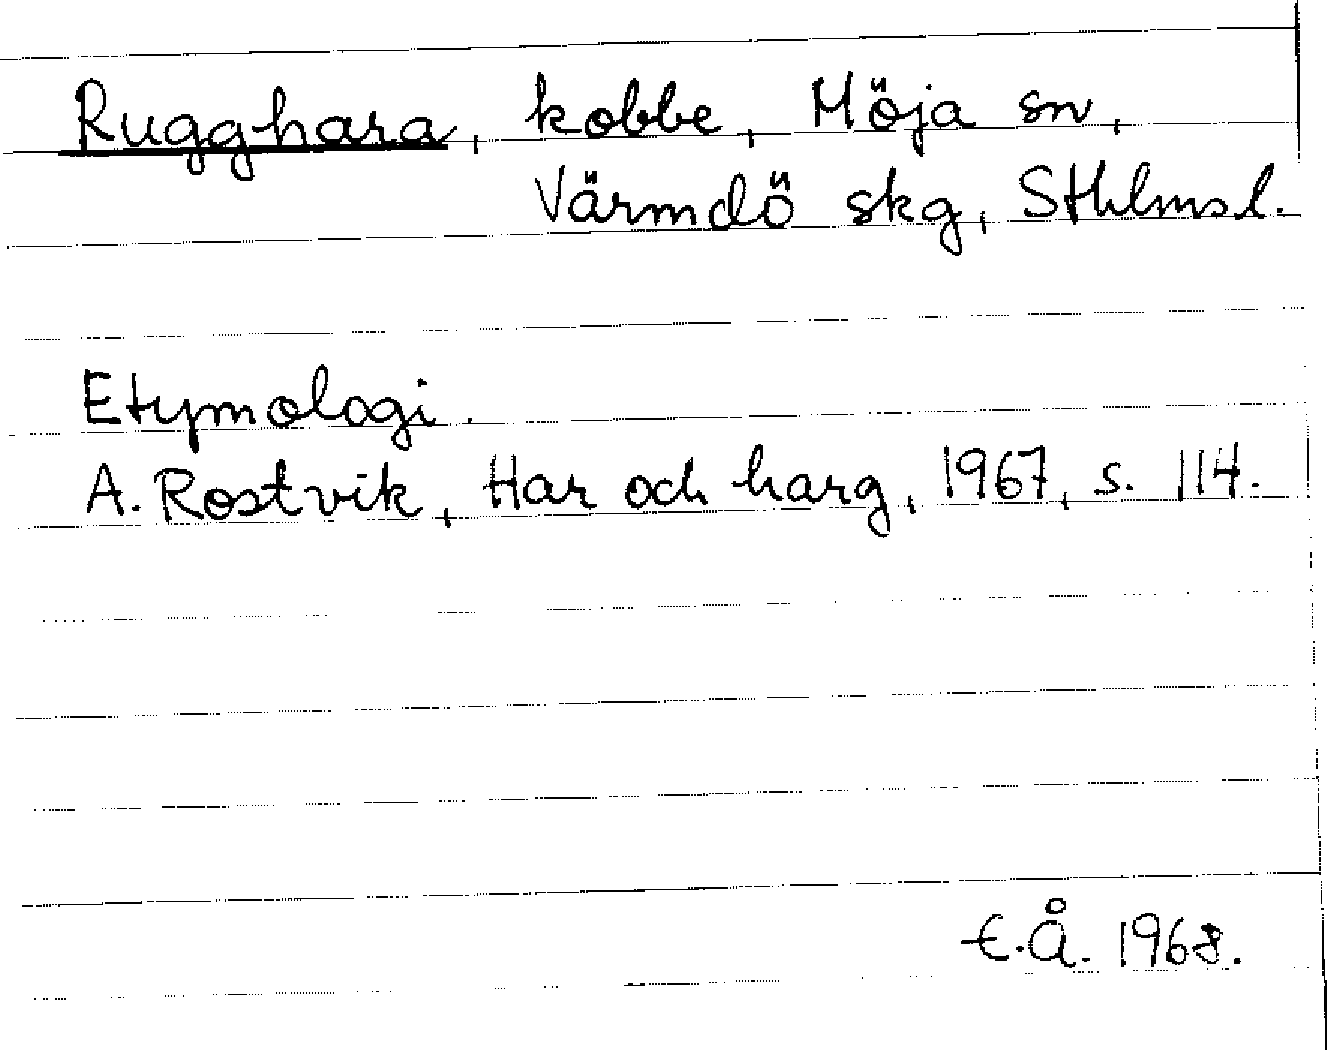 Rugghara, kobbe, Möja sn,
Värmdö skg, Sthlms l.
Etymologi.
A. Rostvik, Har och harg, 1967, s. 114.
E.Å. 1968.